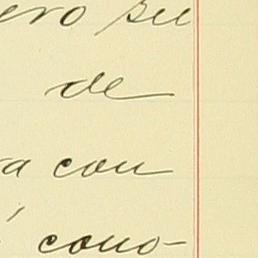 ero su
de
a con
cono-